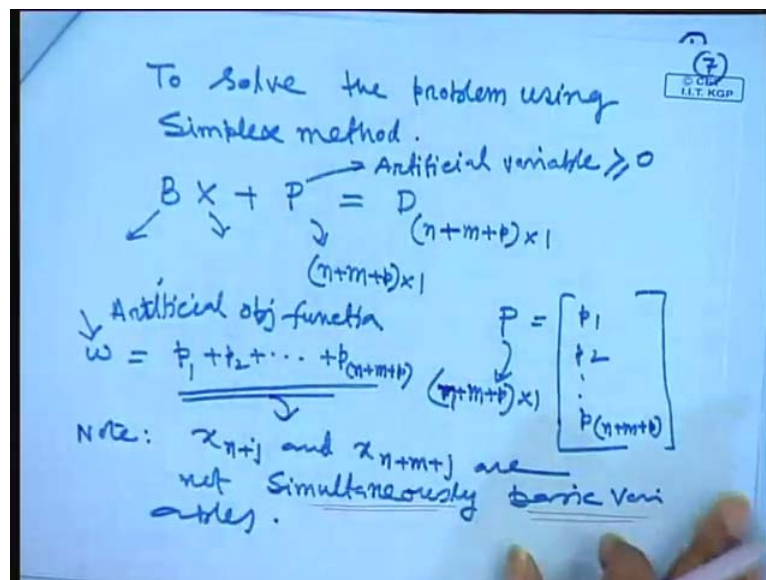 (7)
© CET
I.I.T. KGP
To solve the problem using
Simplex method.
→ Artificial variable ≥ 0
B X + P = D (n+m+p)×1
(n+m+p)×1
Artificial obj-function
w = p₁ + p₂ + ... + p(n+m+p)
P = [p₁
p₂
⋮
p(n+m+p)]
(n+m+p)×1
Note: x n+j and x n+m+j are
not simultaneously basic vari
ables.